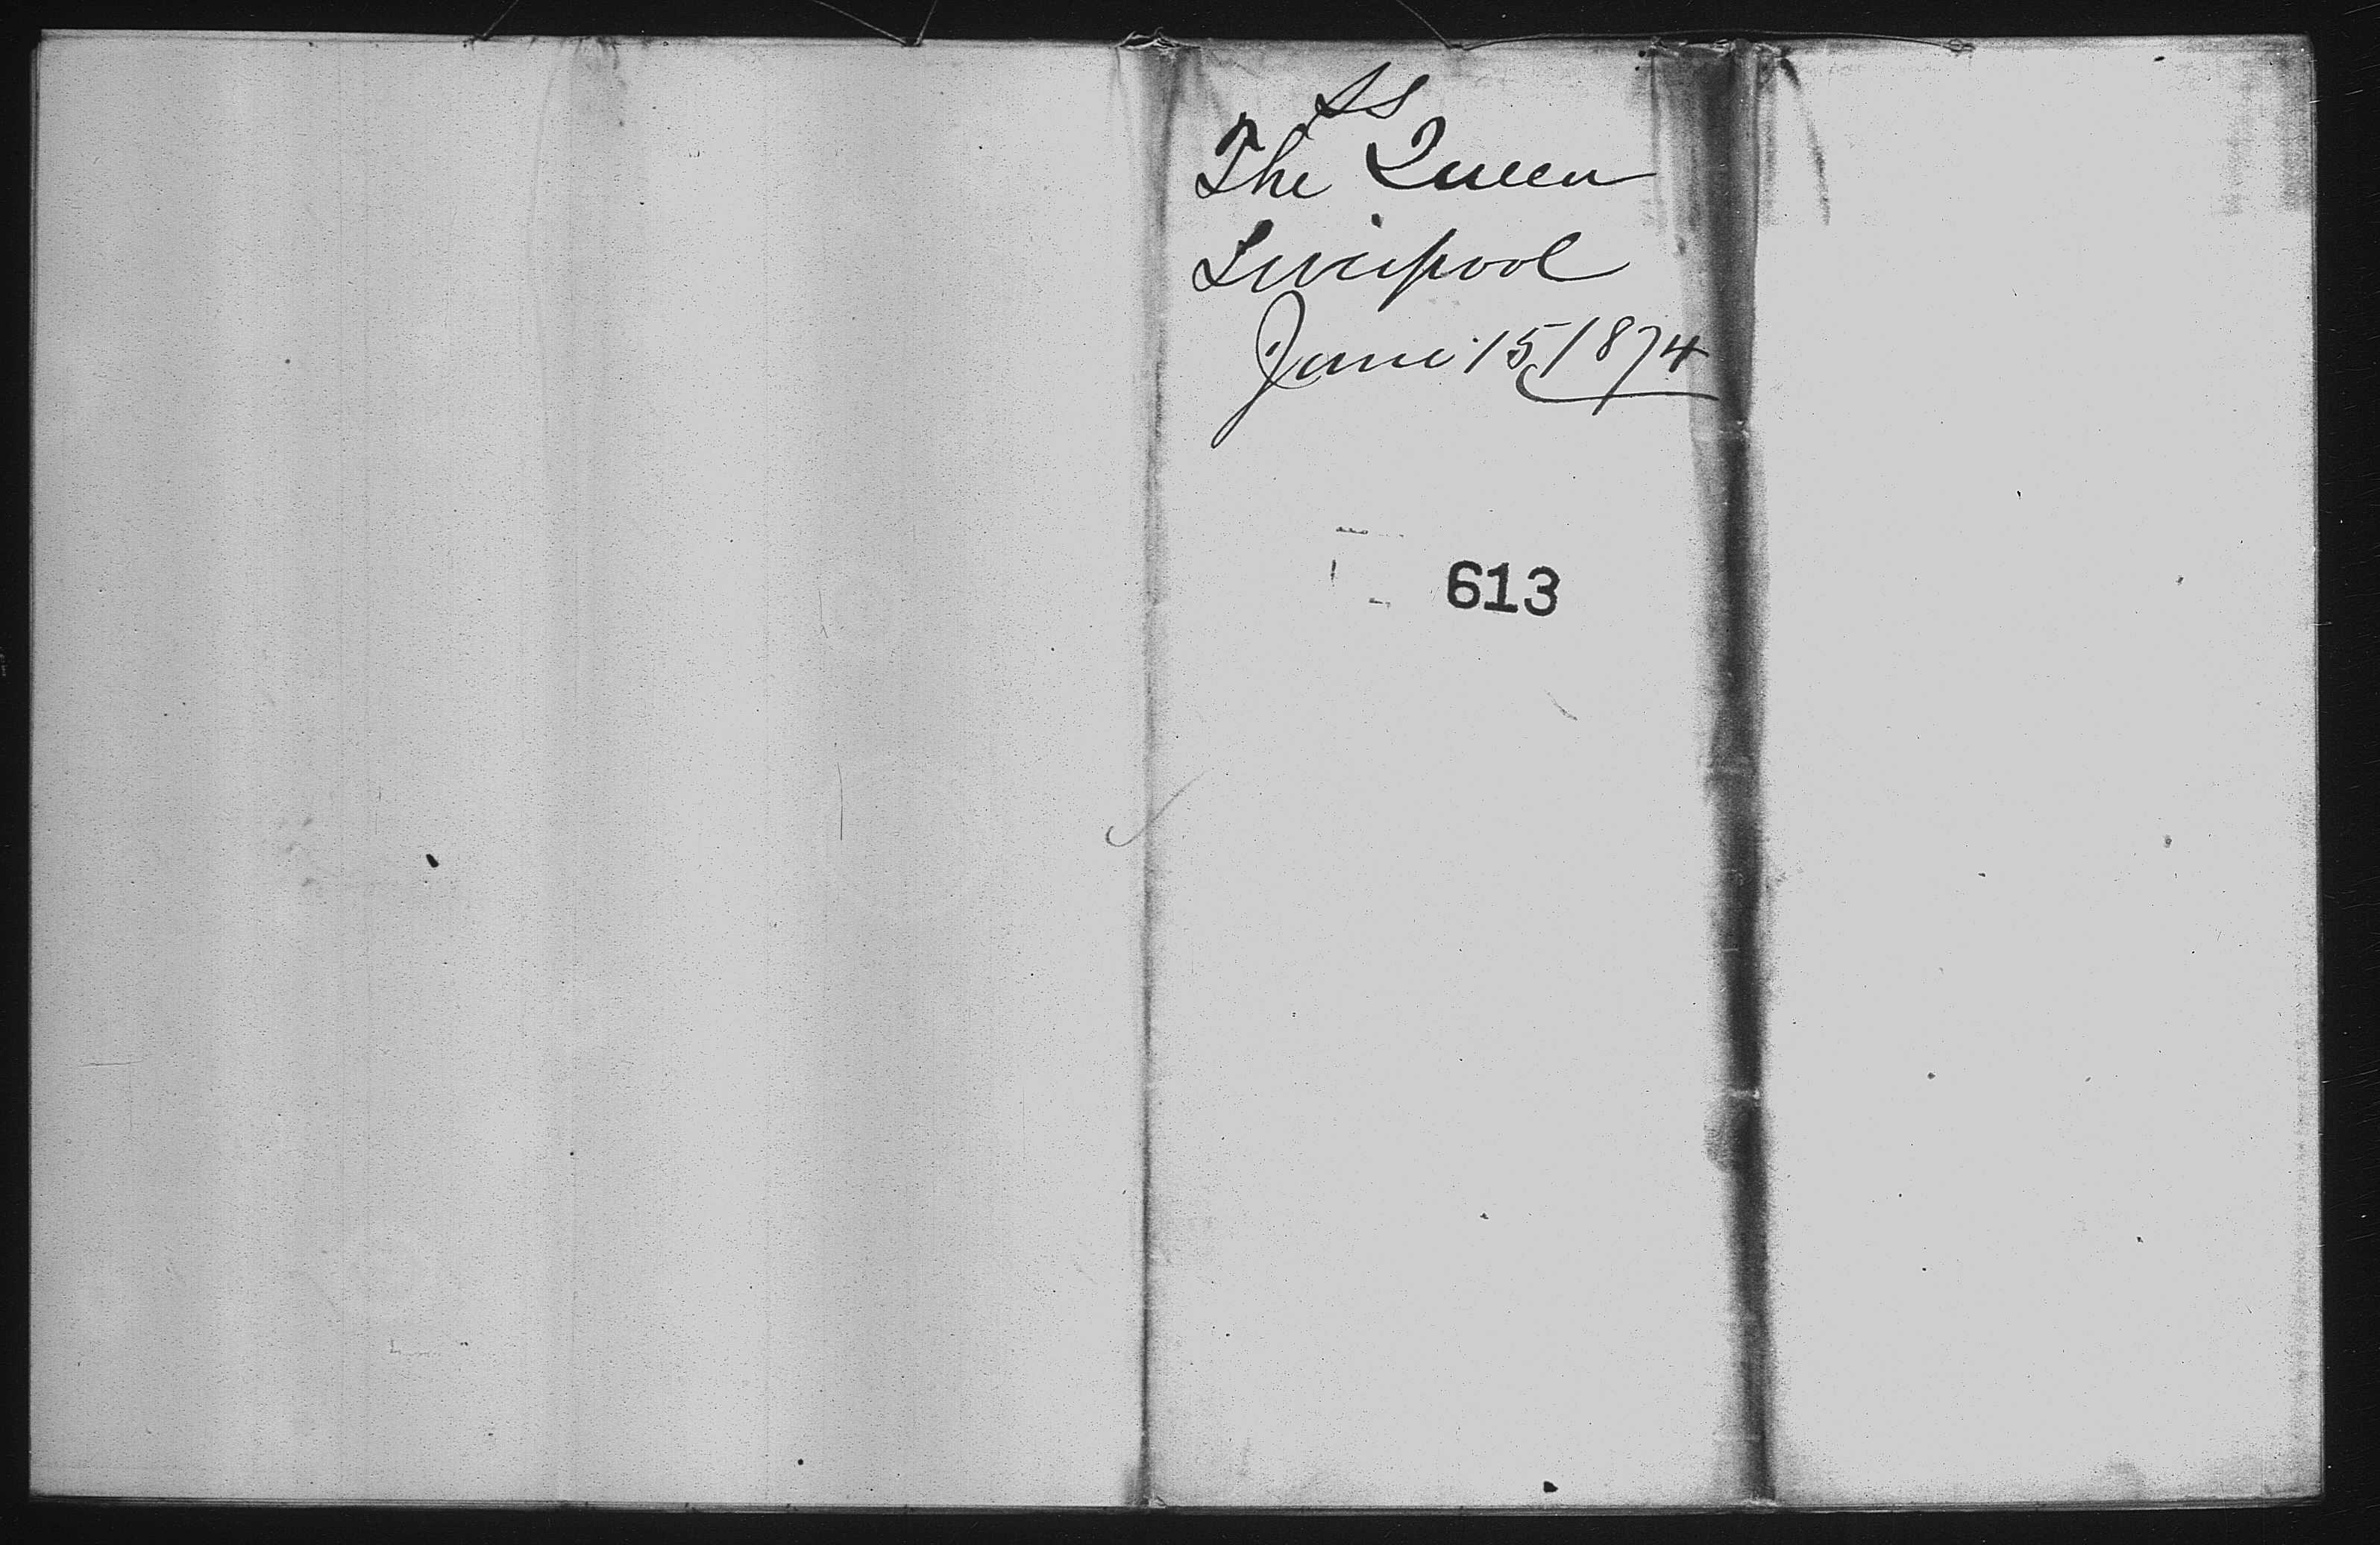 SS
The Queen
Liverpool
June 15, 1874
613